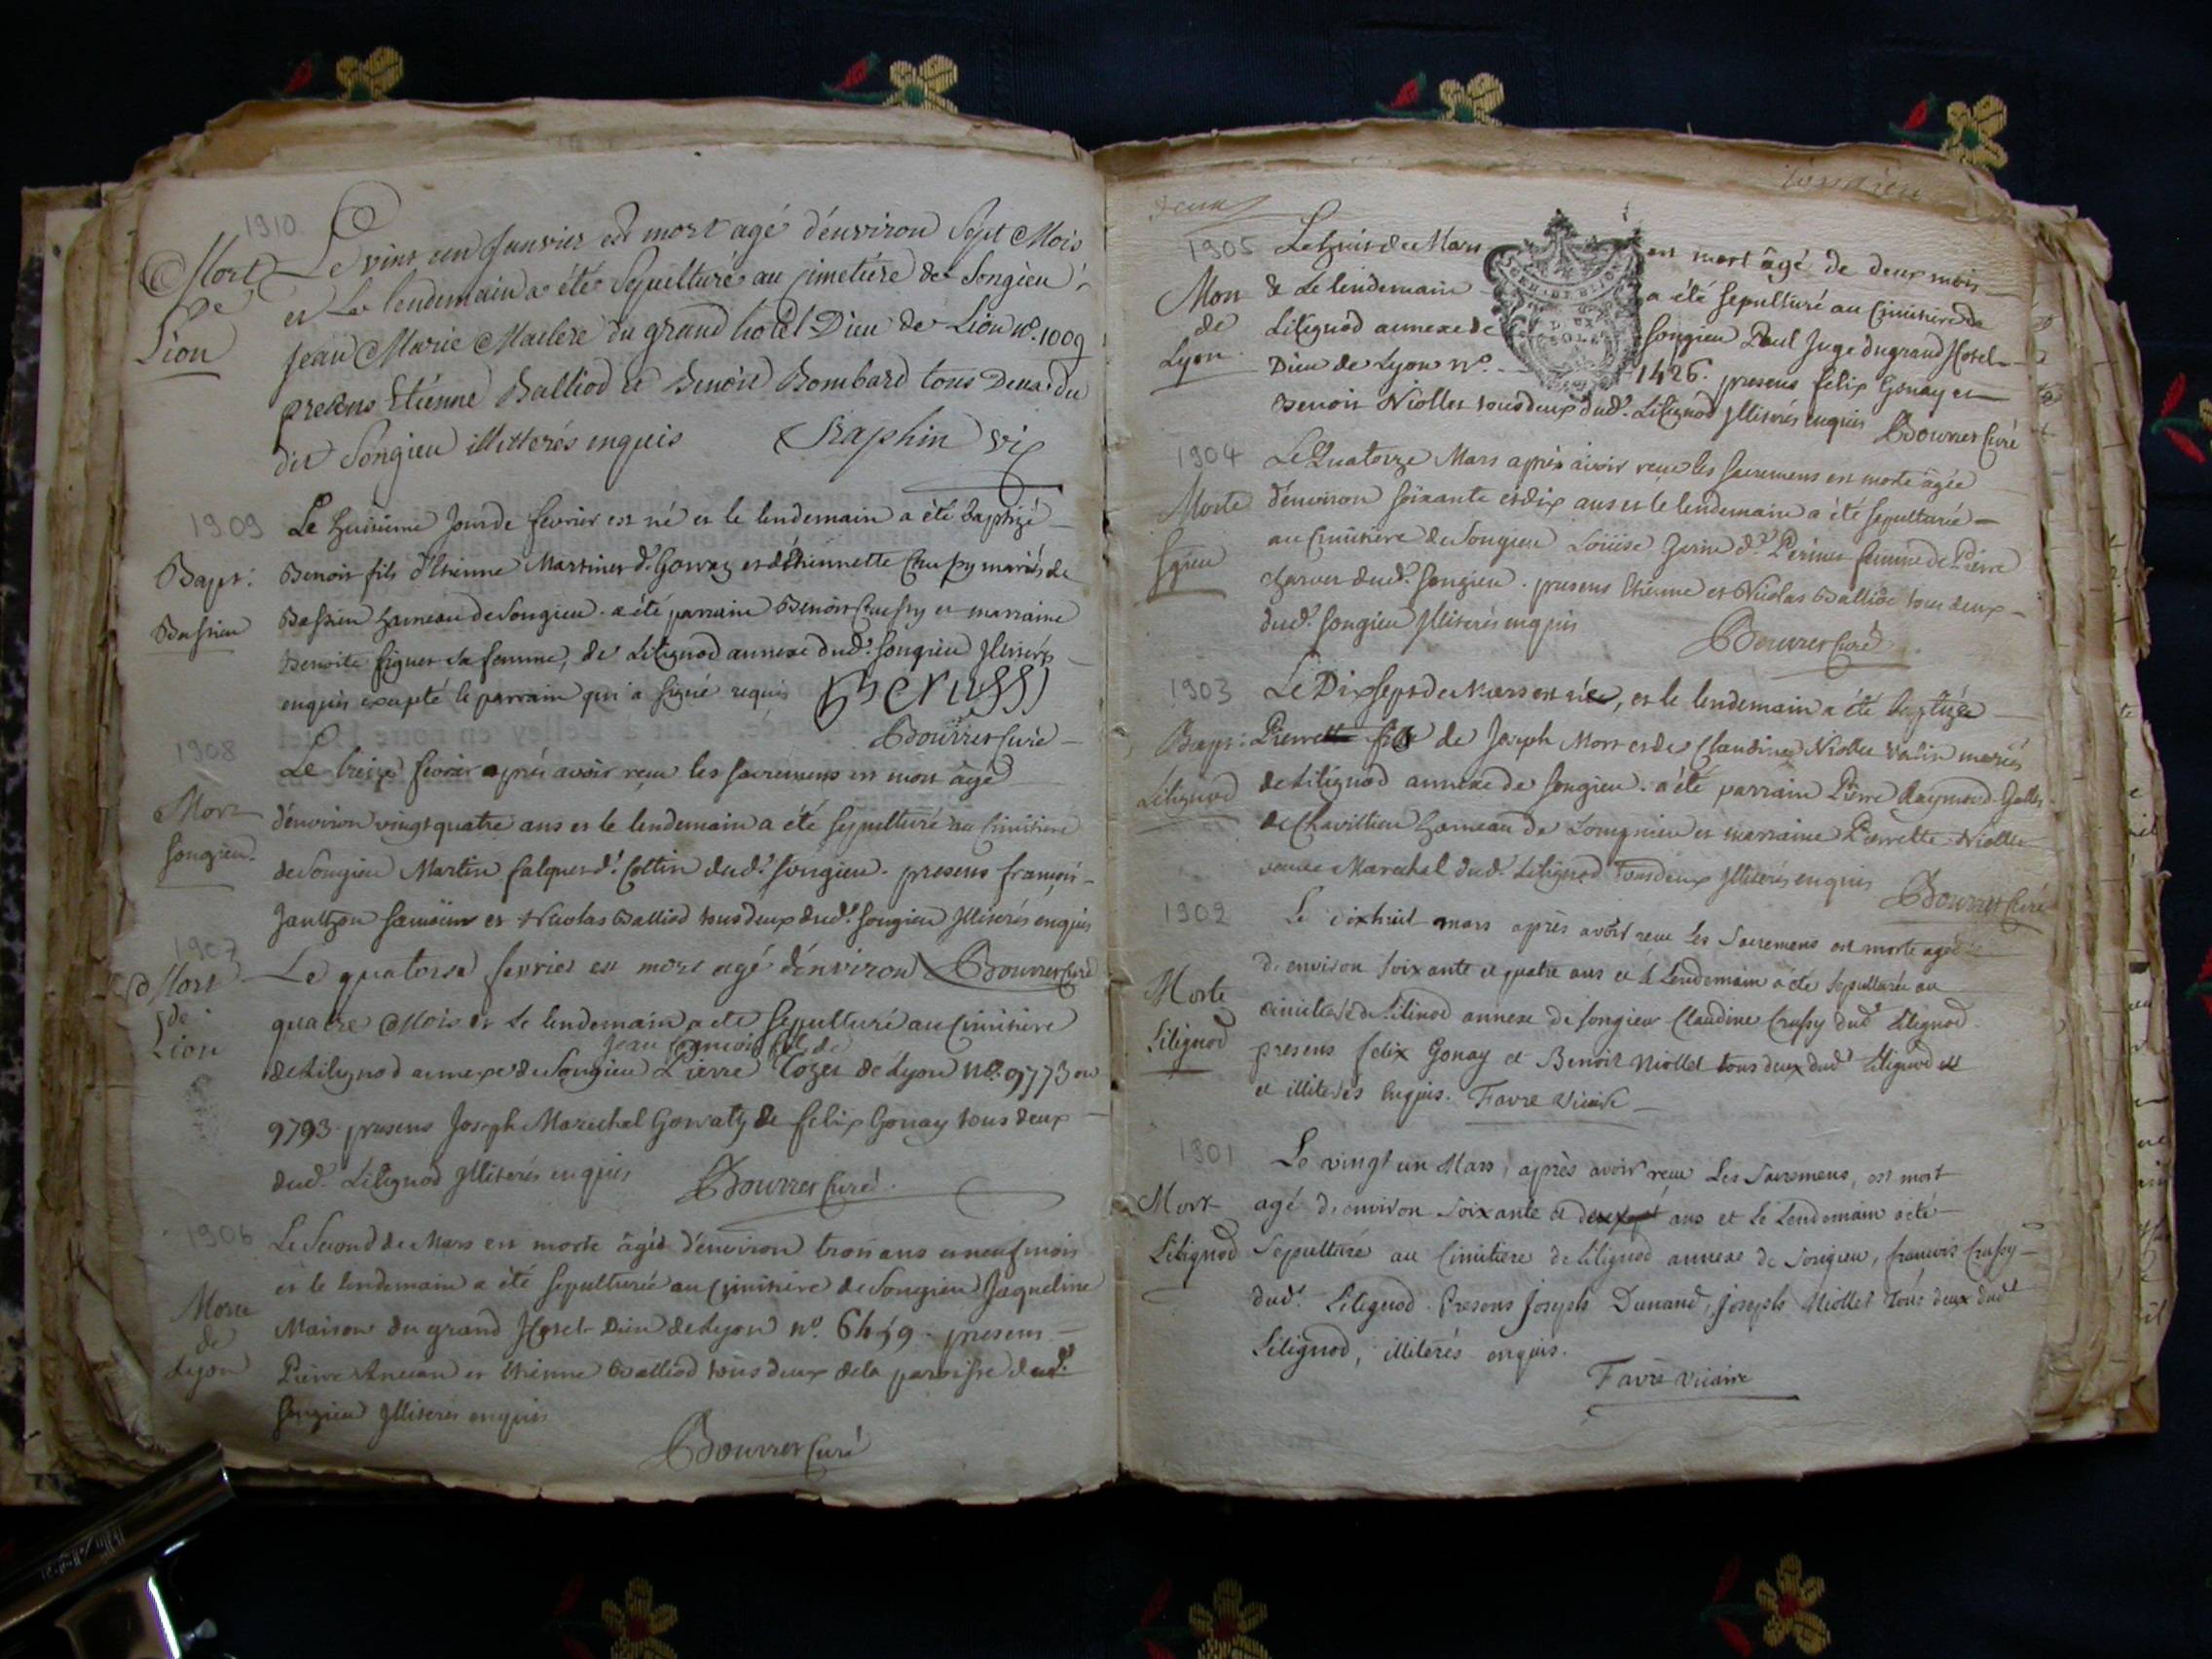 1910
Mort
de
Lion
Le vint un Janvier est mort agé d'environ Sept Mois
et Le lendemain a été Sepulturé au cimetiére de Songieu
Jean Marie Maclere du grand hotel Dieu de Lion n°. 1009
presens Etiénne Balliod et Benoit Bombard tous Deux du
dit Songieu illitterés enquis Seraphin vic
1909
Bapt:
Bassieu
Le huitieme jour de fevrier est né et le lendemain a été baptizé
Benoit fils d'Etienne Martinet d. et d'Etiennette Crussy mariés de
Bassieu hameau de Songieu. a été parrain Benoit Crussy et marraine
Benoite figuet sa femme, de Lilignod annexe dud.t Songieu Jlliterés
enquis excepté le parrain qui a signé requis B crussy
Bourret Curé
1908
Mort
Songieu.
Le treize fevrier aprés avoir reçu les sacremens est mort âgé
d'environ vingt quatre ans et le lendemain a été sepulturé au Cimitiere
de Songieu Martin falquet d.t Cottin dud.t Songieu. presens françois
et Nicolas Balliod tous deux dud.t Songieu Jlliterés enquis
1907
Mort
de
Lion
Le quatorse fevrier est mort agé d'environ Bourret Curé
quatre Mois et le lendemain a eté Sepulturé au Cimitiere
Jean de
de Lilignod annexe de Songieu Pierre de Lyon N°. 9773 ou
9793. presens Joseph Marechal et felix Gonay tous deux
dud.t Lilignod Jlliterés enquis Bourret Curé.
1906
Morte
de
Lyon
Le Second de Mars est morte âgée d'environ trois ans et neuf mois
et le lendemain a été sepulturée au Cimitiere de Songieu Jaqueline
Maison du grand Hotel-Dieu de Lyon n°. 6459. presens
Pierre Ancian et Etienne Balliod tous deux de la paroisse dud.t
Songieu Jlliterés enquis
Bourret Curé
1905
Mort
de
Lyon.
Le huit de Mars est mort âgé de deux mois
& Le lendemain a été sepulturé au Cimitiere de
Lilignod annexe de Songieu Paul Juge du grand Hotel
Dieu de Lyon n°. 1426. presens felix Gonay et
Benoit Niollet tous deux dud.t Lilignod Jlliterés enquis Bourret Curé
1904
Morte
Sgieu
Le Quatorze Mars après avoir reçu les sacremens est morte âgée
d'environ soixante et dix ans et le lendemain a été sepulturée
au Cimitiere de Songieu Loüise d.t Perinet femme de Pierre
Charvet dud.t Songieu. presens Etienne et Nicolas Balliod tous deux
dud.t Songieu Jlliterés enquis
Bourret Curé
1903
Bapt:
Lilignod
Le Dix sept de Mars est née, et le lendemain a été baptizée
Pierrette de Joseph Mort et de Claudine Niollet mariés
de Lilignod annexe de Songieu. a été parrain Pierre Raymond-
de Chavillieu hameau de et marraine Pierrette Niollet
veuve Marechal dud.t Lilignod Tous deux Jlliterés enquis
Bourret Curé
1902
Morte
Lilignod
Le dixhuit mars après avoir reçu Les Sacremens est morte agée
d'environ Soixante et quatre ans et le Lendemain a été Sepulturée au
cimitiere de Lilinod annexe de Songieu Claudine Crussy dud.t Lilignod
presens felix Gonay et Benoit Niollet tous deux dud.t Lilignod
et illiterés Enquis. Favre Vicaire
1901
Mort
Lilignod
Le vingt un Mars, après avoir reçu Les Sacremens, est mort
agé d'environ Soixante et ans et Le Lendemain a été
Sepulturé au Cimitiere de Lilignod annexe de Songieu, françois Crussy
dud.t Lilignod. Presens Joseph Dunand, Joseph Niollet tous deux dud.t
Lilignod, illiterés enquis.
Favre Vicaire